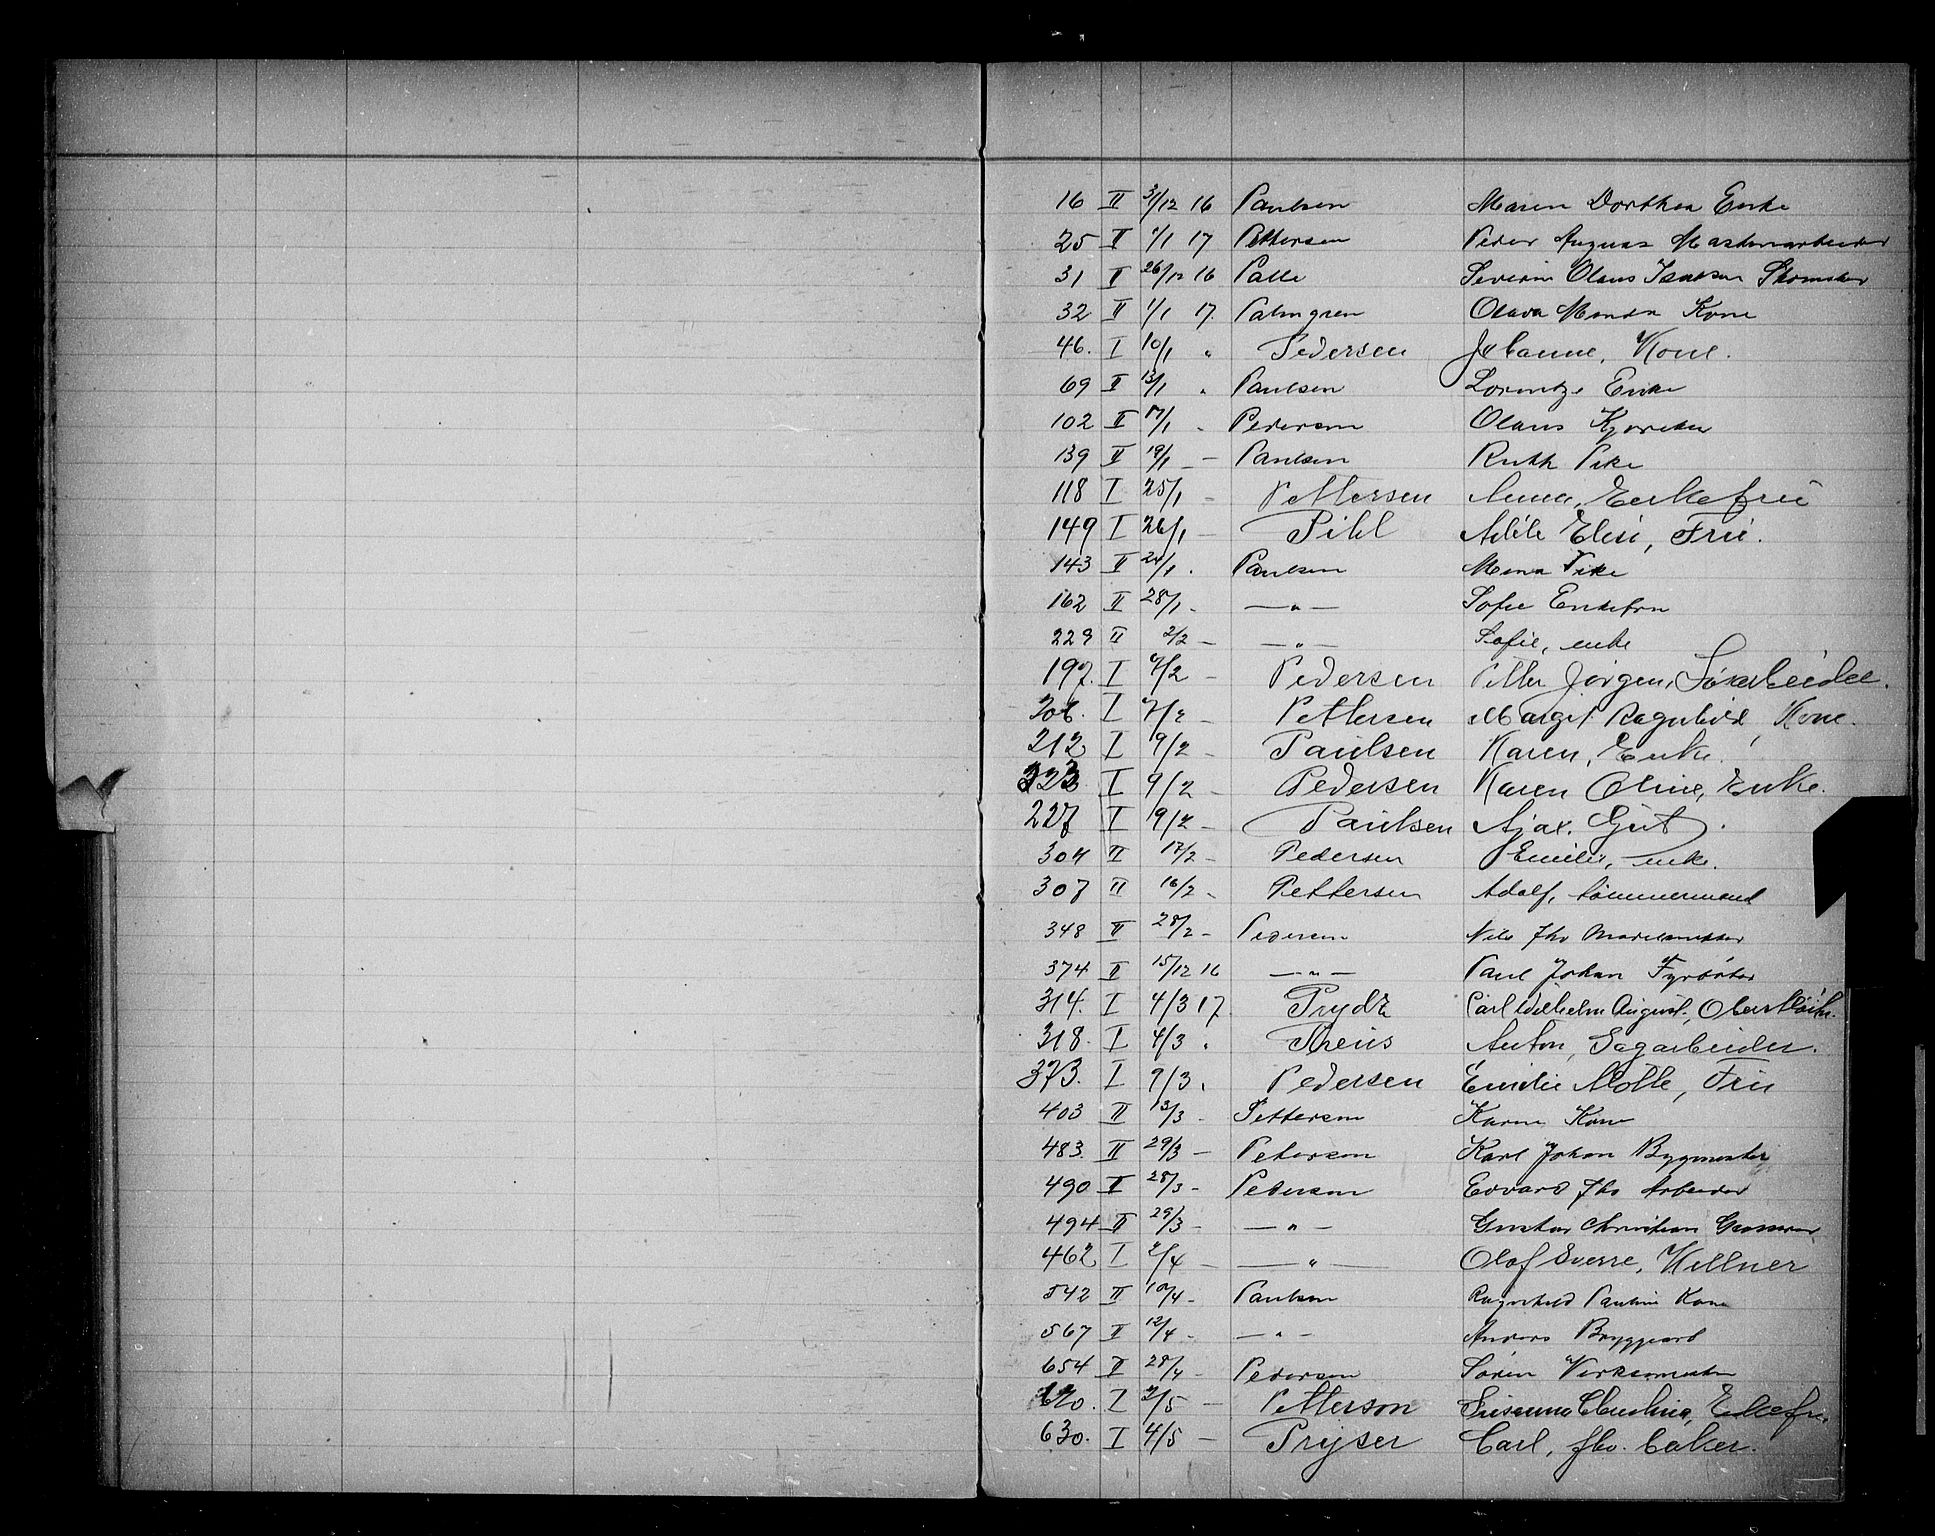 16 II 31/12 16 Paulsen Maren Dorthea Enke
25 II 1/1 17 Pettersen Peder August Maskinarbeider
31 II 26/12 16 Palle Severin Olaus Isaksen Skomaker
32 II 1/1 17. Palmgren Olava Kone
46. I 10/1 " Pedersen Johanne, Kone.
69 II 13/1 " Paulsen Lorentze Enke
102 II 17/1 - Pedersen Olaus Kjøresker
139 II 19/1 - Paulsen Ruth Pike
118 I 25/1 - Pettersen Anna, Enkefru
149 I 26/1 - Pihl Adéle Elise, Frue.
143 II 24/1 . Paulsen Mona Pike
162 II 28/1 - —"— Sofie Enkefru
229 II 2/2 - —"— Sofie, enke
197. I 7/2 - Pedersen Petter Jørgen, Løsarbeider.
206. I 7/2 - Pettersen Margit Ragnhild, Kone.
212 I 9/2 - Paulsen Karen, Enke.
223 I 9/2 - Pedersen Karen Oline, Enke.
227 I 9/2 - Paulsen Ajax. Gut.
304 II 17/2 - Pedersen Emilie, enke.
307 II 16/2 - Pettersen Adolf, tømmermand
348 II 28/2 - Pedersen Nils Fhv
374 II 15/12 16 —"— Paul Johan Fyrbøter
314. I 4/3 17. Prydz Carl Wilhelm August, Oberstløitn.
318. I 4/3 " Preus Anton, Sagarbeider.
373. I 9/3 " Pedersen Emilie Molle, Fru
403 II 13/3 - Petterson Karen Kone
483. II 29/3 - Peterson Karl Johan Bygmester
490 II 28/3 - Pederson Edvard Fhv Arbeider
494 II 29/3 - —"— Gustav Christian
462 I 2/4 - —"— Olaf Sverre, Kellner
542 II 10/4 - Paulsen Ragnhild Pauline Kone
567 II 12/4 - —"— Anders Bryggearb
654 II 28/4 - Pederson Søren Verksmester
620. I 2/5 - Petterson Susanna Claudine, Enkefru.
630. I 4/5 - Prÿser Carl, fhv. baker.